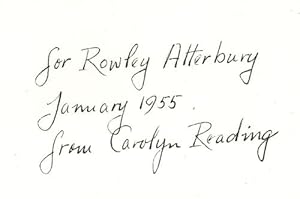 for Rowley Atterbury
January 1955.
from Carolyn Reading